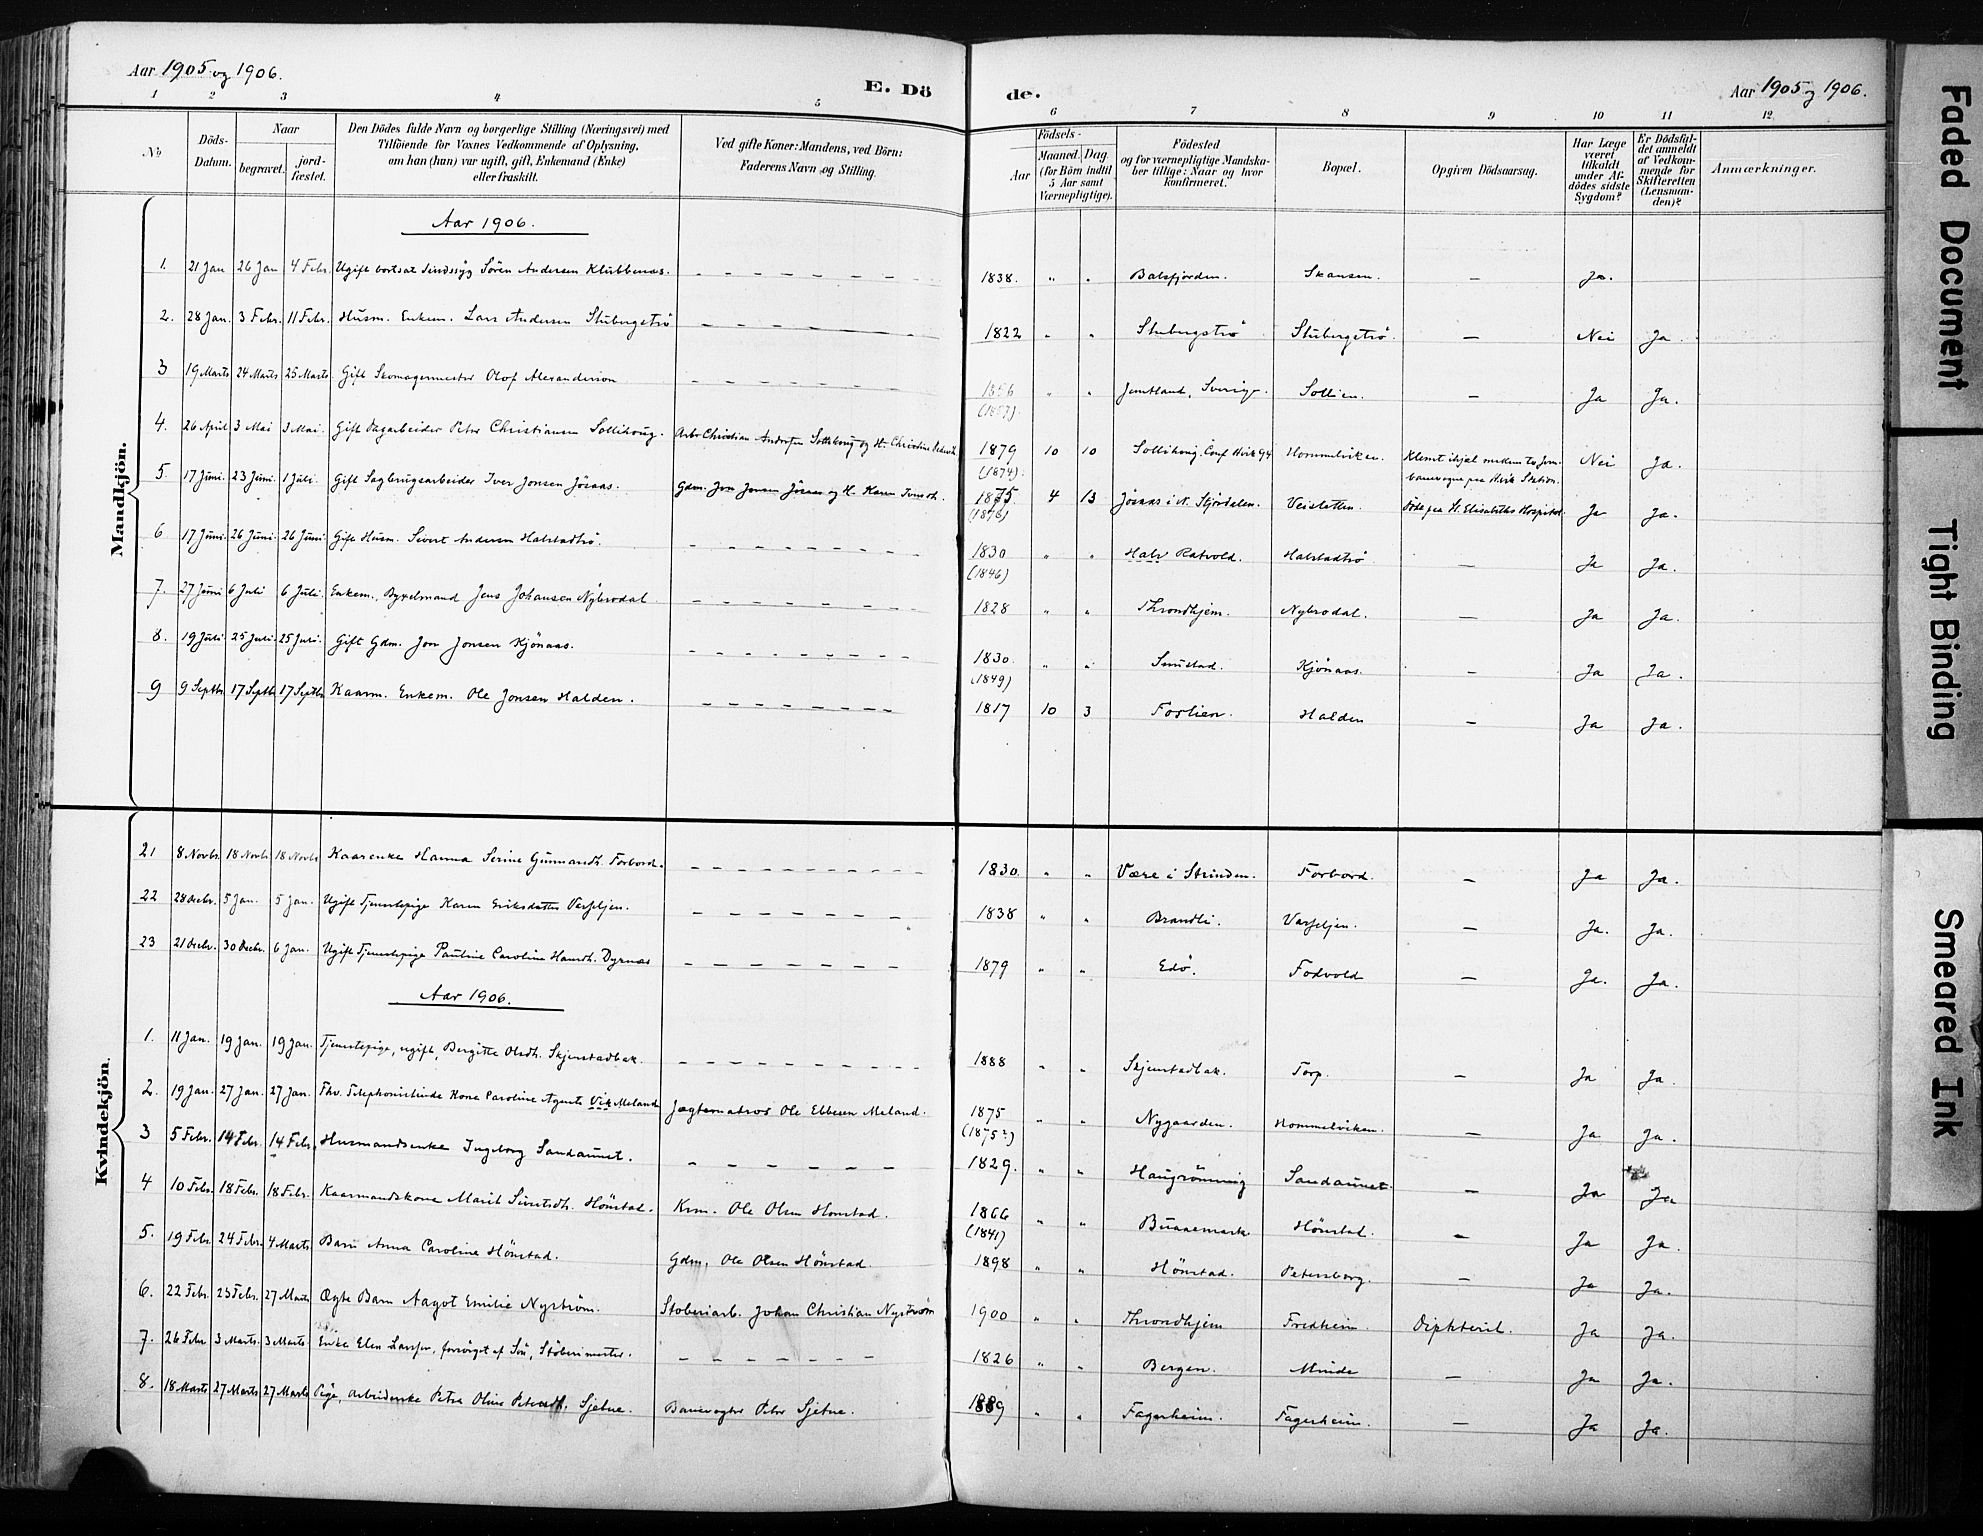 Aar 1905 og 1906.
E. Dö
de.
Aar 1905 og 1906.
1 2 3 4 5 6 7 8 9 10 11 12
No
Döds-Datum.
Naar
begravet.
jord-fæstet.
Den Dödes fulde Navn og borgerlige Stilling (Næringsvei) med
Tilföiende for Voxnes Vedkommende af Oplysning,
om han (hun) var ugift, gift, Enkemand (Enke)
eller fraskilt.
Ved gifte Koner: Mandens, ved Börn:
Faderens Navn og Stilling.
Födsels-
Aar
Maaned. Dag.
(for Börn indtil
5 Aar samt
Værnepligtige).
Födested
og for værnepligtige Mandska-
ber tillige: Naar og hvor
konfirmeret.
Bopæl.
Opgiven Dödsaarsag.
Har Læge
været
tilkaldt
under Af-
dödes sidste
Sygdom?
Er Dödsfal-
det anmeldt
af Vedkom-
mende for
Skifteretten
(Lensman-
den)?
Anmærkninger.
Mandkjön.
Aar 1906.
1. 21 Jan 26 Jan 4 Febr. Ugift bortsat Sindssyg Sören Andersen Klubbenæs. 1838. " " Balsfjorden. Skansen. — Ja.
2. 28 Jan. 3 Febr. 11 Febr. Husm. Enkem. Lars Andersen Stubergströ 1822 " " Stubergströ Stubergströ. — Nei Ja.
3 19 Marts 24 Marts 25 Marts Gift Skomagermester Olof Alexanderson 1856 (1857). " " Jemtland, Sverige. Sollien. — Ja Ja.
4. 26 April 3 Mai 3 Mai. Gift Dagarbeider Peter Christiansen Sollihoug. Arb. Christian Andersen Sollihoug og H. Christine 1879 (1874). 10 10 Sollihoug. Conf Hvik 94 Hommelviken. Klemt ihjæl mellem to Jern-
banevogne paa Hvik Station. Nei Ja.
5 17 Juni. 23 Juni. 1 Juli. Gift Sagbrugsarbeider Iver Jonsen Jösaas. Gdm. Jon Jonsen Jösaas og H. Karen Iversdt. 1875 (1876) 4 13 Jösaas i N. Stjördalen. Veisletten. Döde paa St. Elisabeths Hospital. Ja Ja.
6 17 Juni. 26 Juni. 26 Juni Gift Husm. Sivert Andersen Halstadtrö. 1830 (1846) " " Halv Ratvold. Halstadtrö — Ja Ja.
7. 27 Juni 6 Juli 6 Juli. Enkem., Byxelmand Jens Johansen Nybrodal 1828 " " Throndhjem. Nybrodal. — Ja Ja.
8. 19 Juli 25 Juli. 25 Juli. Gift Gdm. Jon Jonsen Kjönaas. 1830. (1849) " " Smustad. Kjönaas. — Ja Ja.
9 9 Septbr. 17 Septbr. 17 Septbr. Kaarm. Enkem. Ole Jonsen Halden. 1817 10 3 Foslien. Halden — Ja Ja.
Kvindekjön.
21 8 Novbr. 18 Novbr. 18 Novbr. Kaarenke Hanna Serine Gunnarsdt. Forbord. 1830. " " Være i Strinden. Forbord. — Ja Ja.
22 28 Decbr. 5 Jan. 5 Jan. Ugift Tjenestepige Karen Eriksdatter Varseljen. 1838 " " Brandli. Varseljen. — Ja. Ja.
23 21 Decbr. 30 Decbr. 6 Jan. Ugift Tjenestepige Pauline Caroline Hansdt. Dyrnæs 1879 " " Edö. Fodvold — Ja. Ja.
Aar 1906.
1. 11 Jan. 19 Jan. 19 Jan. Tjenestepige, ugift, Bergitte Olsdt. Skjenstadbak. 1888 " " Skjenstadbak. Torp. — Ja Ja.
2. 19 Jan. 27 Jan. 27 Jan. Fhv. Telephonistinde Kone Caroline Agnete Vik Meland Jagtematros Ole Ebbesen Meland. 1875 (1875?) " " Nygaarden. Hommelviken. — Ja Ja.
3 5 Febr. 14 Febr. 14 Febr. Husmandsenke Ingeborg Sandaunet. 1829. " " Haugrönning Sandaunet. — Ja Ja
4 10 Febr. 18 Febr. 18 Febr. Kaarmandskone Marit Sivertsdt. Hönstad. Krm. Ole Olsen Honstad. 1866 (1841) " " Buaasmark Hönstad. — Ja Ja.
5. 19 Febr. 24 Febr. 4 Marts Barn Anna Caroline Hönstad. Gdm. Ole Olsen Hönstad. 1898 " " Hönstad. Petersborg. — Ja Ja.
6. 22 Febr. 23 Febr. 27 Marts Ægte Barn Aagot Emilie Nyström. Stöberiarb. Johan Christian Nyström 1900 " " Throndhjem Fredheim. Diphterit. Ja Ja.
7. 26 Febr 3 Marts. 3 Marts Enke Elen Larssen, forsörget af Sön, Stöberimester. 1826 " " Bergen. Minde — Ja Ja.
8. 18 Marts 27 Marts 27 Marts Pige, Petra Oline Petersdt. Sjetne. Banevogter Peter Sjetne. 1889 " " Fagerheim. Fagerheim. — Ja Ja.
Faded Document
Tight Binding
Smeared Ink